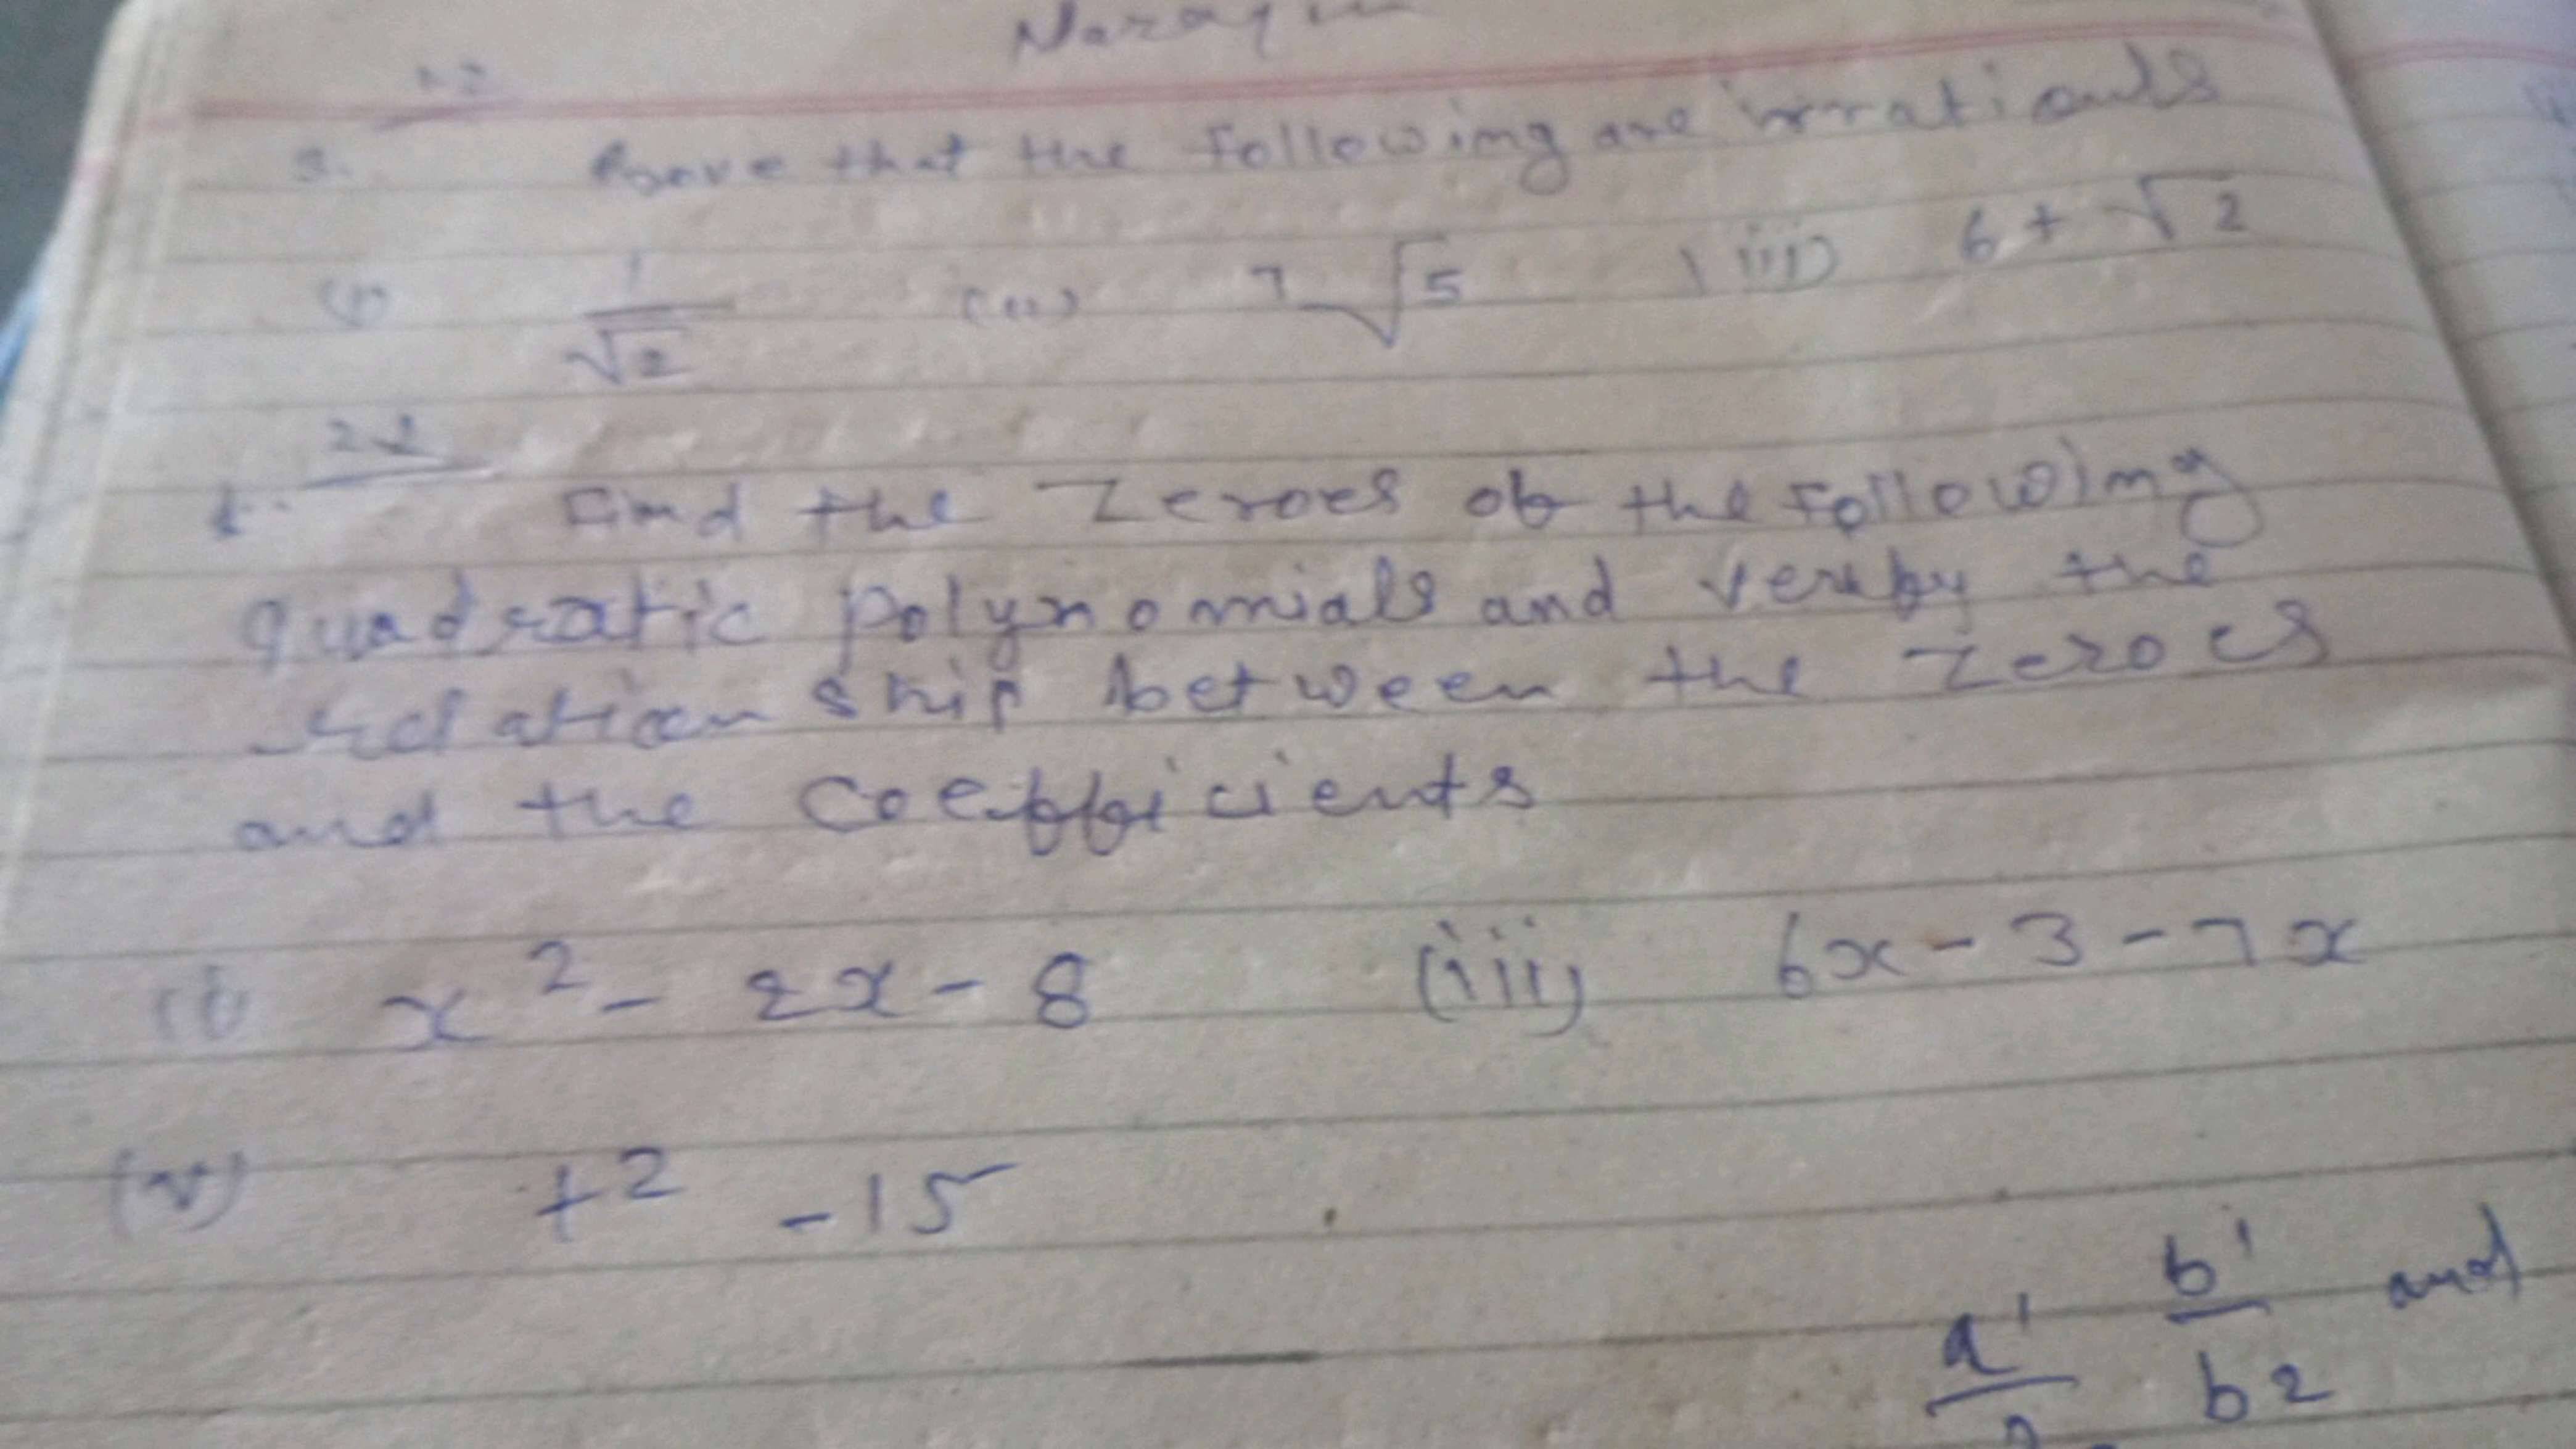 3. Prove that the following are irrationals
(i) 1/√2 (ii) 7√5 (iii) 6 + √2
Find the Zeroes of the Following
quadratic polynomials and verify the
relation ship between the Zeroes
and the coefficients
(i) x² - 2x - 8 (iii) 6x - 3 - 7x
(v) t² - 15
a1 b1/b2 and